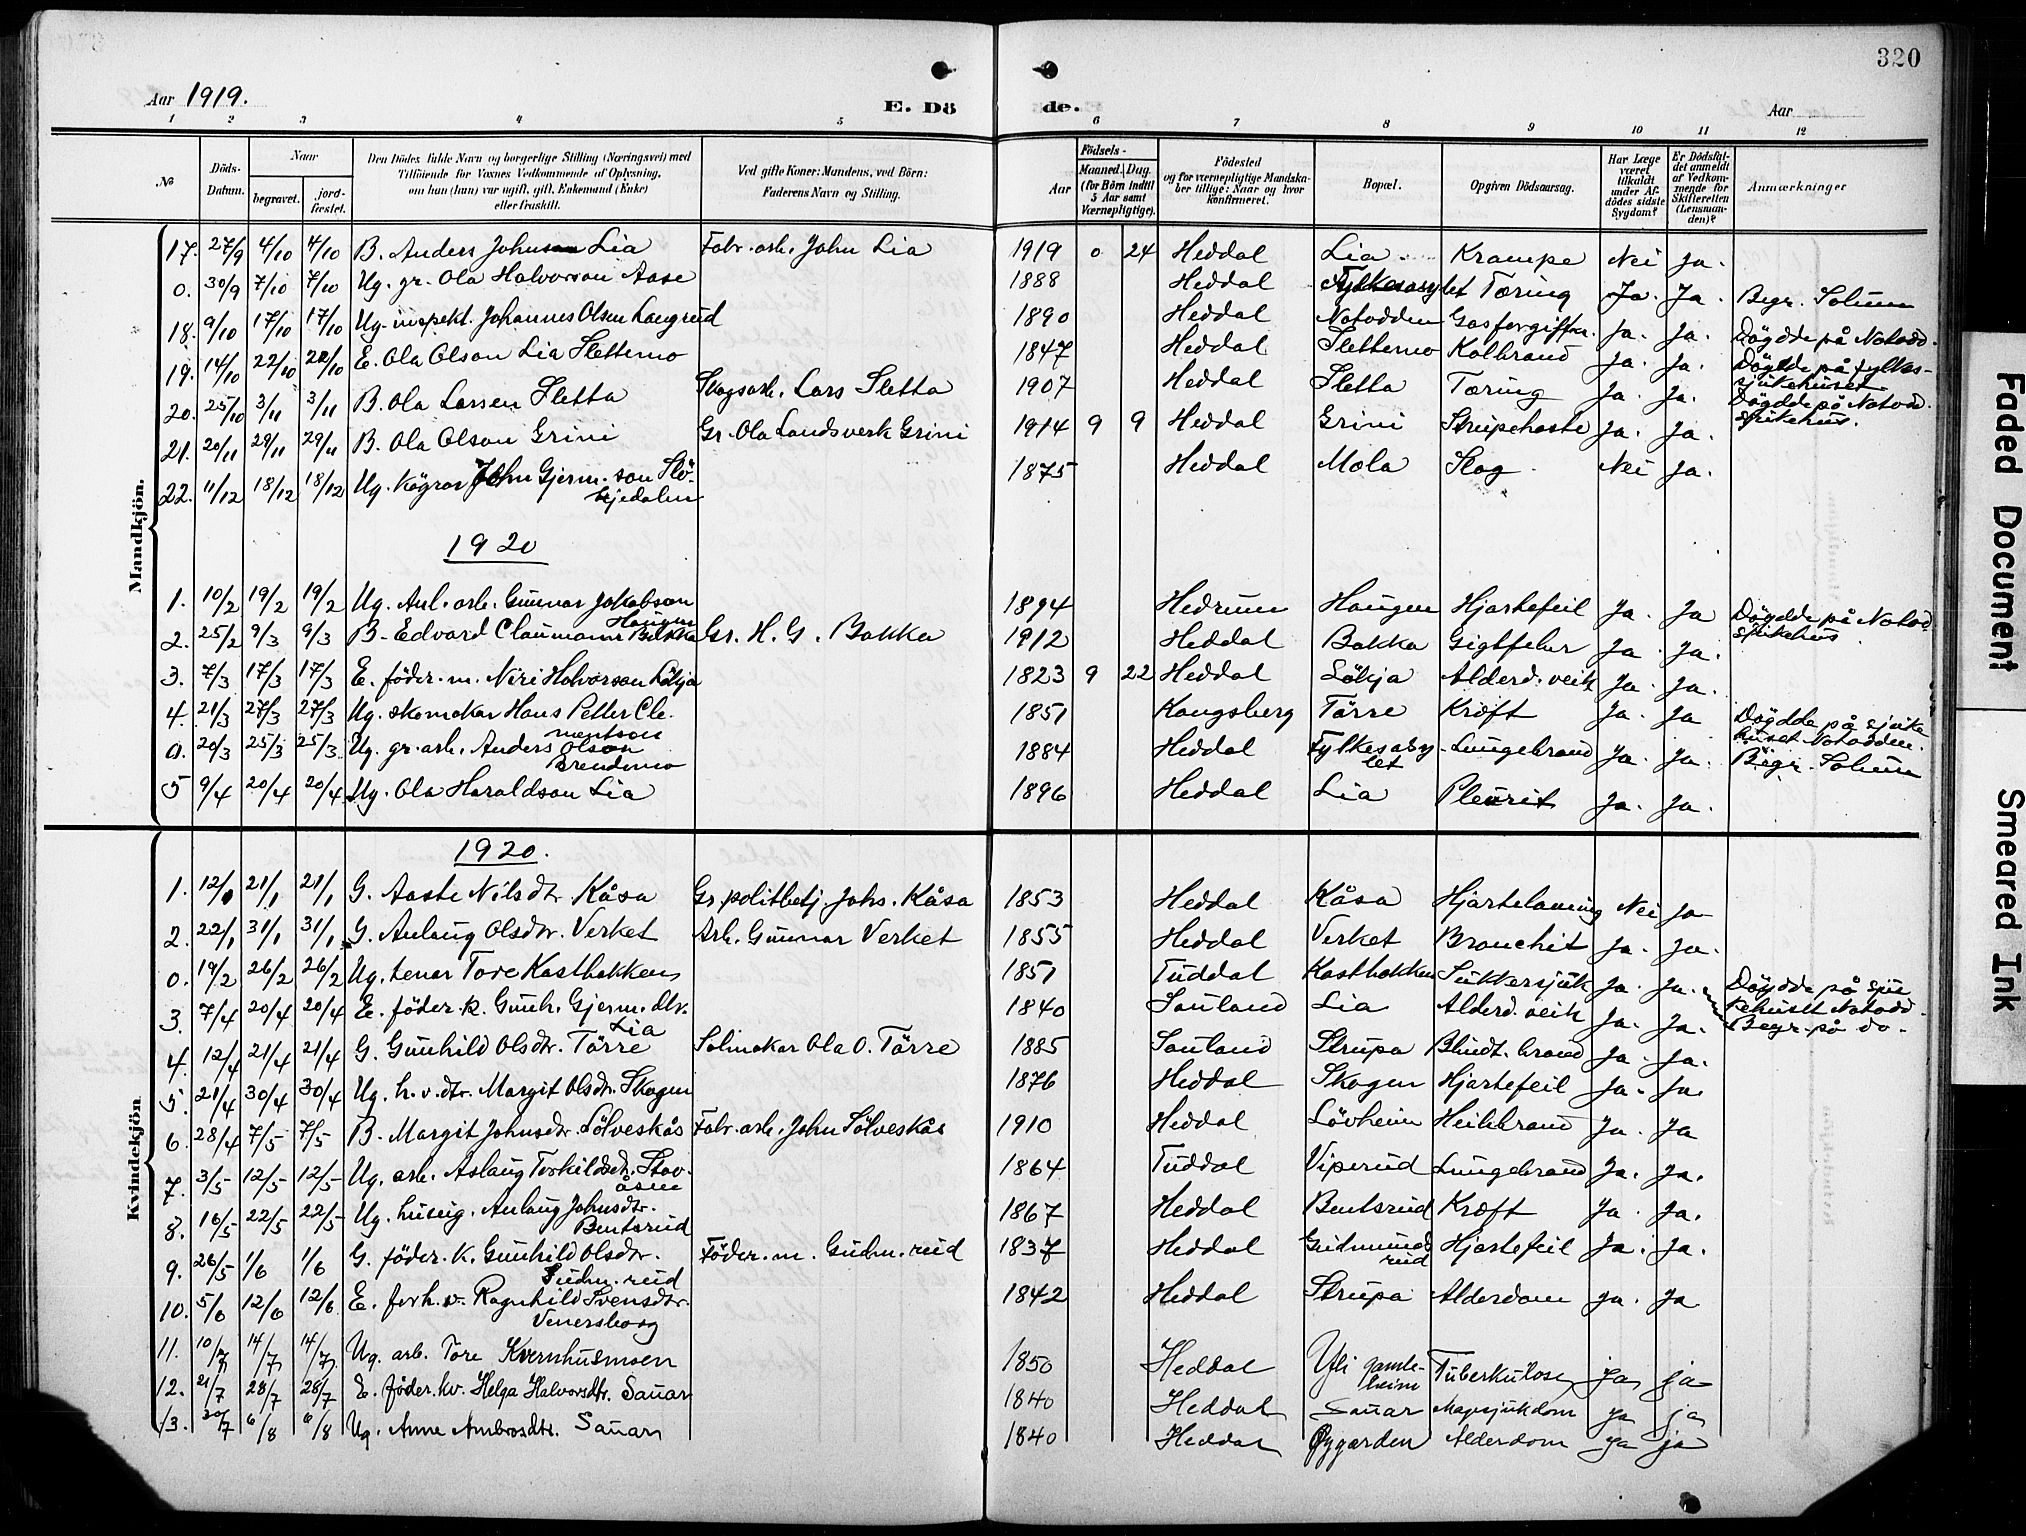 320
Aar 1919.
E. Dö de.
Aar
1 2 3 4 5 6 7 8 9 10 11 12
No
Döds-Datum.
Naar begravet. jordfæstet.
Den Dödes fulde Navn og borgerlige Stilling (Næringsvei) med Tilföiende for Voxnes Vedkommende af Oplysning, om han (hun) var ugift, gift, Enkemand (Enke) eller fraskilt.
Ved gifte Koner: Mandens, ved Börn: Faderens Navn og Stilling.
Födsels-
Aar
Maaned. Dag. (for Börn indtil 5 Aar samt Værnepligtige).
Födested og for værnepligtige Mandskaber tillige: Naar og hvor konfirmeret.
Bopæl.
Opgiven Dödsaarsag.
Har Læge været tilkaldt under Afdödes sidste Sygdom?
Er Dödsfaldet anmeldt af Vedkommende for Skifteretten (Lensmanden)?
Anmærkninger
Mandkjön.
17. 27/9 4/10 4/10 B. Anders Johnson Lia Fabr. arb. John Lia 1919 0 24 Heddal Lia Krampe Nei Ja.
0. 30/9 7/10 7/10 Ug. gr. Ola Halvorson Aase 1888 Heddal Fylkesasylet Tæring Ja. Ja. Begr. Solum
18. 9/10 17/10 17/10 Ug. inspekt. Johannes Olsen Langrud 1890 Heddal Notodden Gasforgiftn. Ja. Ja. Döydde på Notodd.
19. 14/10 22/10 22/10 E. Ola Olson Lia Sletterno 1847 Heddal Sletterno Kolbrand Ja. Ja. Döydde på fylkes-sjukehuset
20. 25/10 3/11 3/11 B. Ola Larsen Sletta Skogsarb. Lars Sletta 1907 Heddal Sletta Tæring Ja. Ja. Döydde på Notodd. sjukehus.
21. 20/11 29/11 29/11 B. Ola Olson Grini Gr. Ola Landsverk Grini 1914 9 9 Heddal Grini Strupehoste Ja. Ja.
22. 11/12 18/12 18/12 Ug. John Gjerm. son 1875 Heddal Mæla Slag. Nei Ja.
1920
1. 10/2 19/2 19/2 Ug. Anl. arb. Gunnar Jakobson Haugen 1894 Hedrum Haugen Hjartefeil Ja. Ja Döydde på Notodd. sjukehus
2. 25/2 9/3 9/3 B. Edvard Claumann Bakka Gr. H. G. Bakka 1912 Heddal Bakka Gigtfeber Ja. Ja.
3. 7/3 17/3 17/3 E. föder. m. Niri Halvorson Lökja 1823 9 22 Heddal Lökja Alderd. veik Ja. Ja.
4. 21/3 27/3 27/3 Ug. skomakar Hans Petter Clementson 1851 Kongsberg Tårre Kræft Ja. Ja Döydde på sjukehuset Notodden.
0. 20/3 25/3 25/3 Ug. gr. arb. Anders Olson Brendemo 1884 Heddal Fylkesasylet Lungebrand Ja. Ja. Begr. Solum
5 9/4 20/4 20/4 Ug. Ola Haraldson Lia 1896 Heddal Lia Pleurit Ja. Ja.
Kvindekjön
1920.
1. 12/1 21/1 21/1 G. Aaste Nilsdtr. Kåsa Gr. politbetj. Johs. Kåsa 1853 Heddal Kåsa Hjartelaming Nei Ja
2. 22/1 31/1 31/1 G. Anlaug Olsdtr. Verket Arb. Gunnar Verket 1855 Heddal Verket Bronchit Ja. Ja.
0. 19/2 26/2 26/2 Ug. tenar Tore Kasthakken 1851 Tuddal Kasthakken Sukkersjuk Ja. Ja. Döydde på sjukehuset Notodd. Begr. på do.
3. 7/4 20/4 20/4 E. föder. k. Gunh. Gjerm. dtr. Lia 1840 Sauland Lia Alderd. veik Ja. Ja.
4. 12/4 21/4 21/4 G. Gunhild Olsdtr. Tårre Salmakar Ola O. Tårre 1885 Sauland Strupa Blindt. brand Ja. Ja.
5. 21/4 30/4 30/4 Ug. h. v. dtr. Margit Olsdtr. Skogen 1876 Heddal Skogen Hjartefeil Ja. Ja.
6. 28/4 7/5 7/5 B. Margit Johnsdtr. Sölveskås Fabr. arb. John Sölveskås 1910 Heddal Lövheim Heilebrand Ja. Ja
7. 3/5 12/5 12/5 Ug. arb. Aslaug Torkildsdtr. Stavåsen 1864 Tuddal Viperud Lungebrand Ja. Ja.
8. 16/5 22/5 22/5 Ug. huseig. Anlaug Johnsdtr. Bentsrud 1867 Heddal Bentsrud Kræft Ja. Ja.
9. 26/5 1/6 1/6 G. föder. k. Gunhild Olsdtr. Gudm. rud Föder. m. Gudm. rud 1837 Heddal Gudmundsrud Hjartefeil Ja. Ja.
10. 5/6 12/6 12/6 E. forh. v. Ragnhild Svensdtr. Venersborg 1842 Heddal Strupa Alderdom Ja. Ja
11. 10/7 14/7 14/7 Ug. arb. Tore Kvernhusmoen 1850 Heddal Yli gamleheim Tuberkulose ja ja
12. 21/7 28/7 28/7 E. föder. kv. Helga Halvorsdtr. Sauar 1840 Heddal Sauar Magesjukdom ja ja
13. 30/7 6/8 6/8 Ug. Anne Ambrosdtr. Sauar 1840 Heddal Øygarden Alderdom ja ja
Faded Document
Smeared Ink